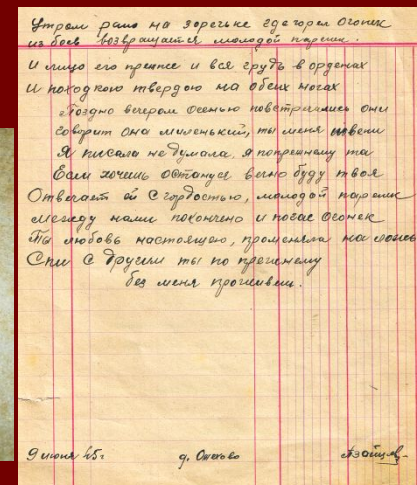 Утром рано на зореньке где горел Огонек
из боев возвращается молодой парень.
И лицо его прежнее и вся грудь в орденах
И походкою твердою на обеих ногах
Поздно вечером осенью повстречались они
Говорит она миленький, ты меня извени
Я писала не думала, я попрежнему та
Если хочешь останусь вечно буду твоя
Отвечает ей с гордостью, молодой паренек
между нами покончено и погас Огонек
Ты любовь настоящею, променяла на ложь
Спи с другим ты по прежнему
без меня проживеш.
9 июня 45г д.